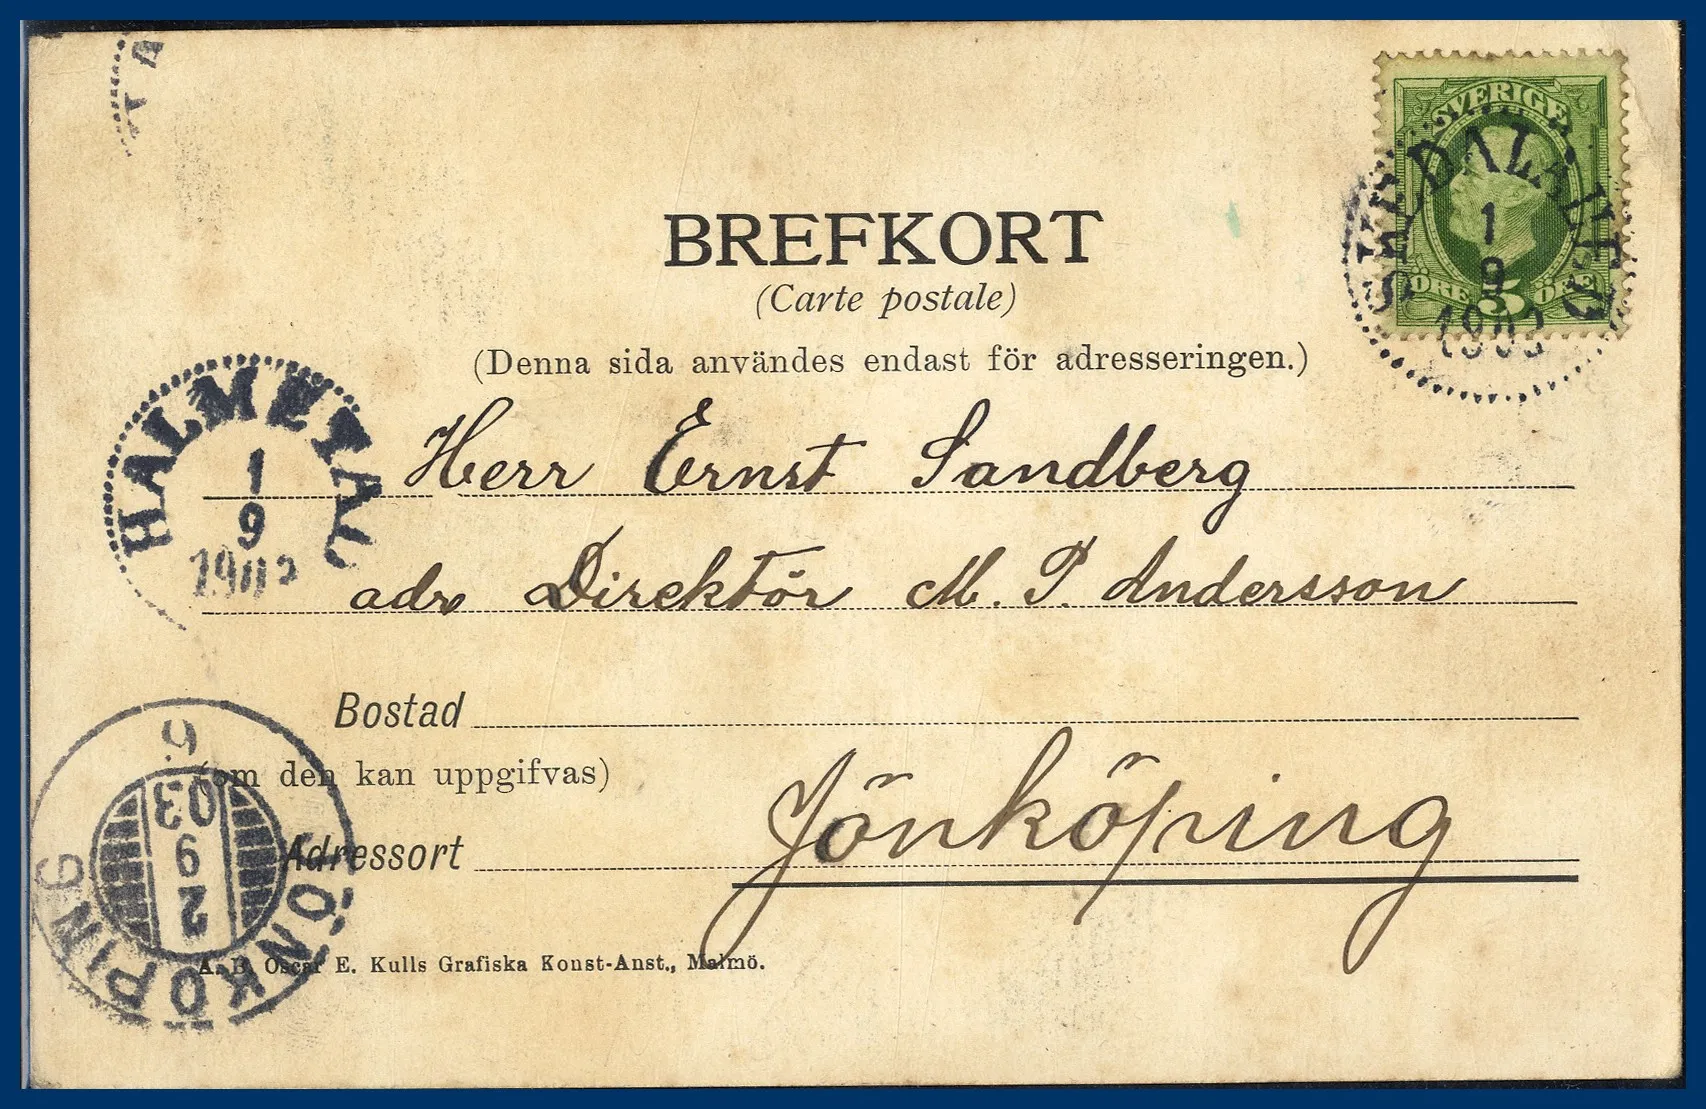 SVERIGE
5
ÖRE ÖRE
1
9
1903
BREFKORT
(Carte postale)
(Denna sida användes endast för adresseringen.)
HALMSTAD
1
9
Herr Ernst Sandberg
adr Direktör M. P. Andersson
Bostad
(om den kan uppgifvas)
Adressort
Jönköping
JÖNKÖPING
2 9 03
6
A. B. Oscar E. Kulls Grafiska Konst-Anst., Malmö.